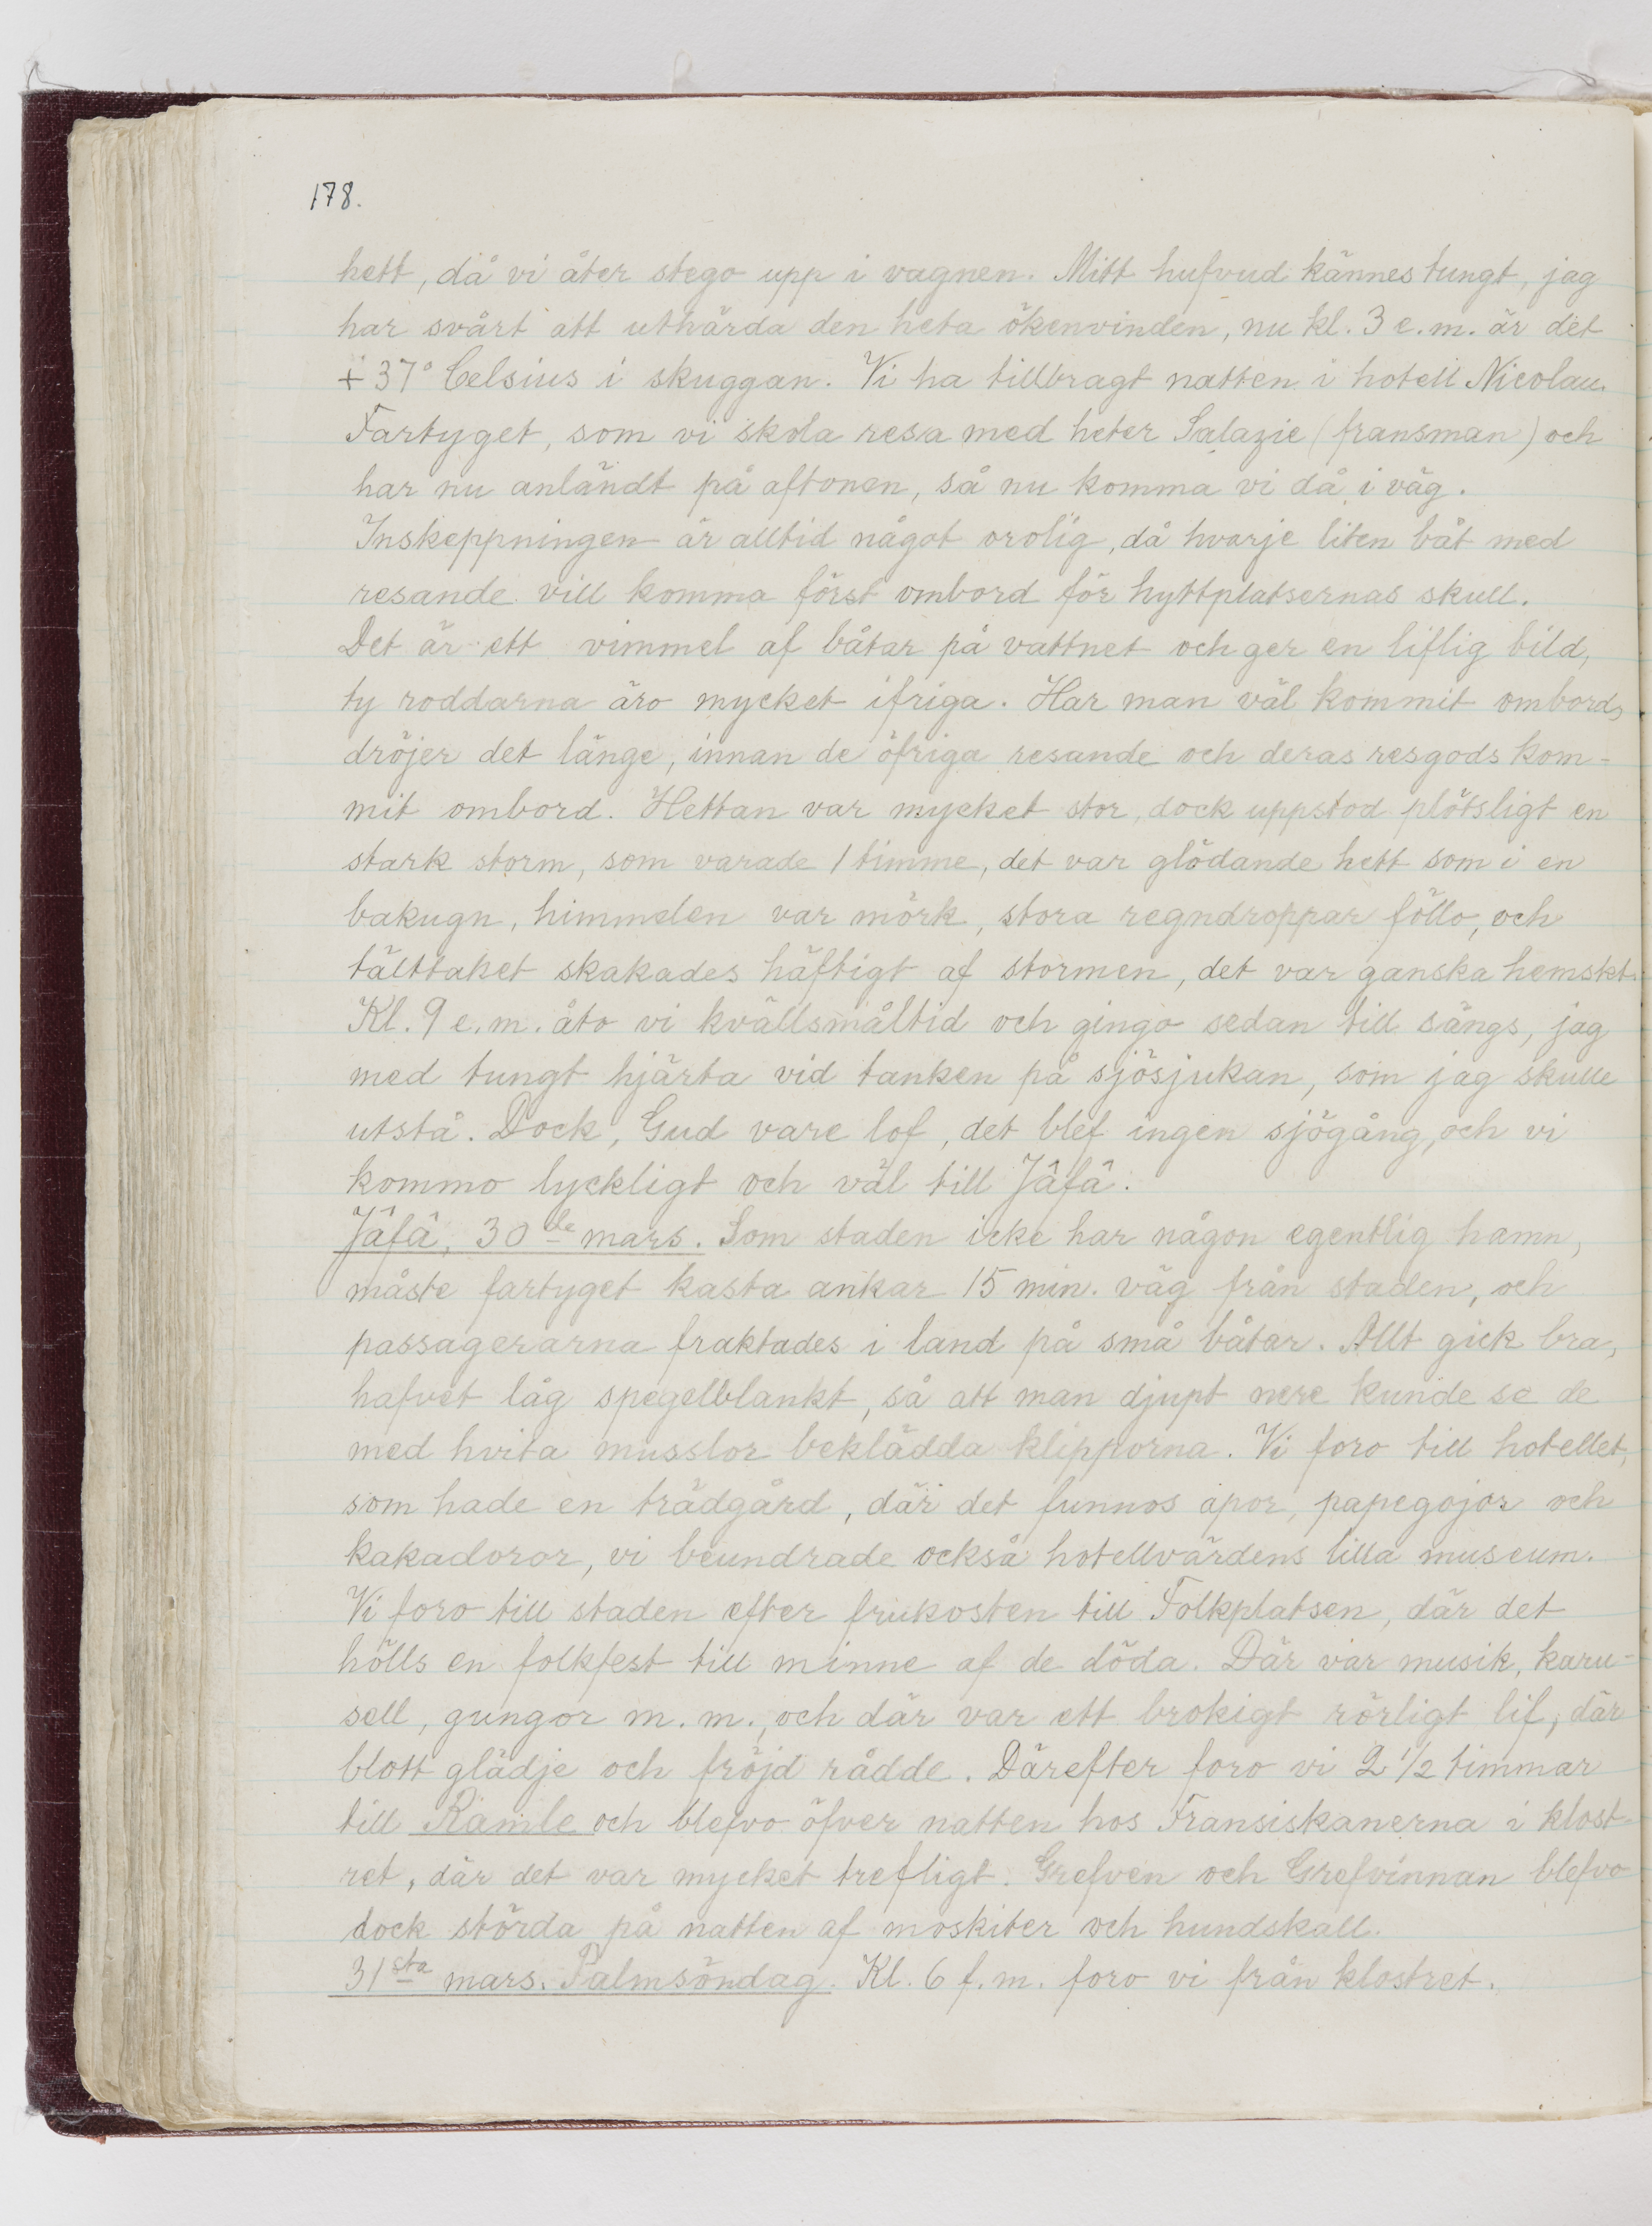 178.
hett, då vi åter stego upp i vagnen. Mitt hufvud kännes tungt, jag
har svårt att uthärda den heta ökenvinden, nu kl. 3 e.m. är det
+ 37° Celsius i skuggan. Vi ha tillbragt natten i hotell Nicolau.
Fartyget, som vi skola resa med heter Salazie (fransman) och
har nu anländt på aftonen, så nu komma vi då i väg.
Inskeppningen är alltid något orolig, då hvarje liten båt med
resande vill komma först ombord för hyttplatsernas skull.
Det är ett vimmel af båtar på vattnet och ger en liflig bild,
ty roddarna äro mycket ifriga. Har man väl kommit ombord,
dröjer det länge, innan de öfriga resande och deras resgods kom-
mit ombord. Hettan var mycket stor, dock uppstod plötsligt en
stark storm, som varade 1 timme, det var glödande hett som i en
bakugn, himmelen var mörk, stora regndroppar föllo, och
tälttaket skakades häftigt af stormen, det var ganska hemskt.
Kl. 9 e.m. åto vi kvällsmåltid och gingo sedan till sängs, jag
med tungt hjärta vid tanken på sjösjukan, som jag skulle
utstå. Dock, Gud vare lof, det blef ingen sjögång, och vi
kommo lyckligt och väl till Jâfâ.
Jâfâ, 30de mars. Som staden icke har någon egentlig hamn,
måste fartyget kasta ankar 15 min. väg från staden, och
passagerarna fraktades i land på små båtar. Allt gick bra,
hafvet låg spegelblankt, så att man djupt nere kunde se de
med hvita musslor beklädda klipporna. Vi foro till hotellet,
som hade en trädgård, där det funnos apor, papegojor och
kakadoror, vi beundrade också hotellvärdens lilla museum.
Vi foro till staden efter frukosten till Folkplatsen, där det
hölls en folkfest till minne af de döda. Där var musik, karu-
sell, gungor m.m., och där var ett brokigt rörligt lif, där
blott glädje och fröjd rådde. Därefter foro vi 2 1/2 timmar
till Ramle och blefvo öfver natten hos Fransiskanerna i klost-
ret, där det var mycket trefligt. Grefven och Grefvinnan blefvo
dock störda på natten af moskiter och hundskall.
31sta mars. Palmsöndag. Kl. 6 f.m. foro vi från klostret.